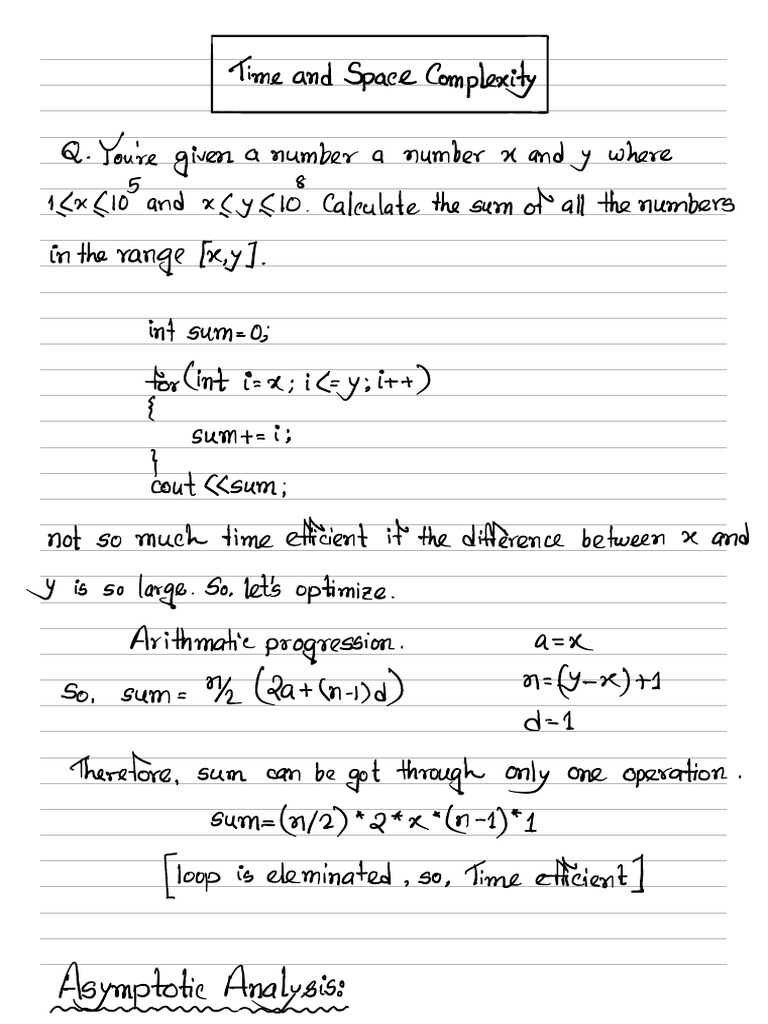 Time and Space Complexity
Q. You're given a number a number x and y where
1≤x≤10⁵ and x≤y≤10⁸. Calculate the sum of all the numbers
in the range [x,y].
int sum=0;
for(int i=x; i<=y; i++)
{
sum+=i;
}
cout <<sum;
not so much time efficient if the difference between x and
y is so large. So, let's optimize.
Arithmatic progression. a=x
So, sum= n/2 (2a+(n-1)d) n=(y-x)+1
d=1
Therefore, sum can be got through only one operation.
sum=(n/2)*2*x*(n-1)*1
[loop is eleminated, so, Time efficient]
Asymptotic Analysis: